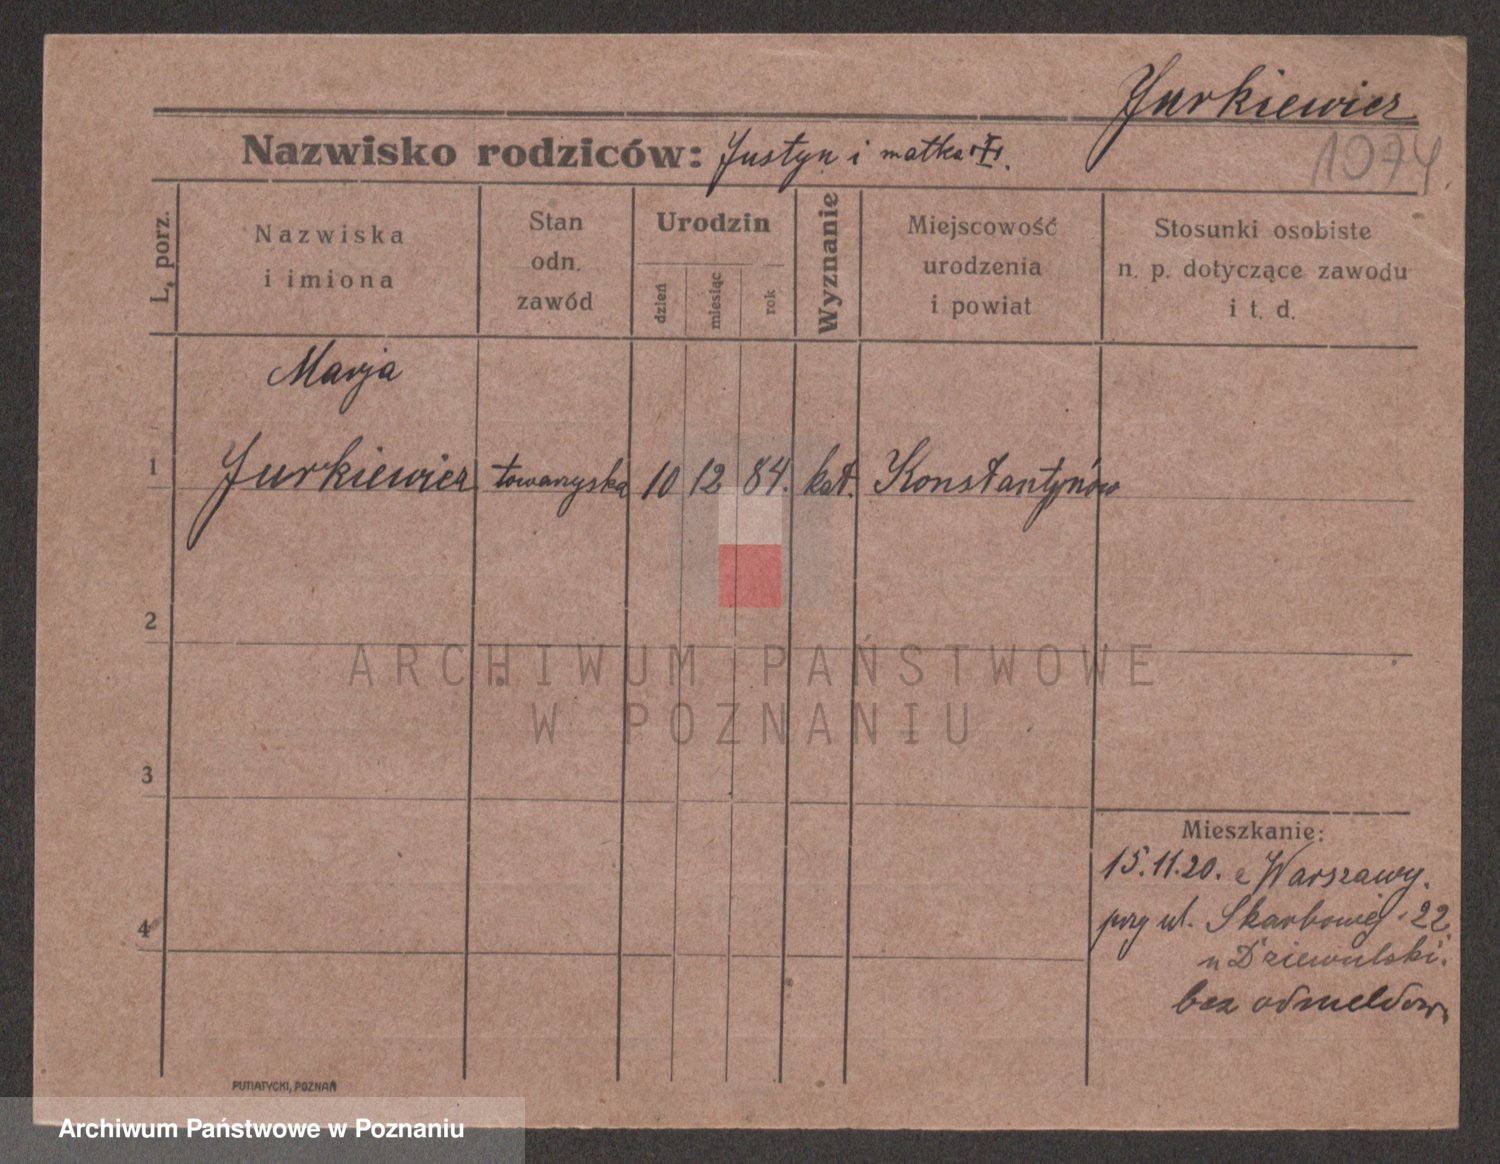 Jurkiewicz
1074
Nazwisko rodziców: Justyn i matka
L. porz.
Nazwiska
i imiona
Stan
odn.
zawód
Urodzin
dzień
miesiąc
rok
Wyznanie
Miejscowość
urodzenia
i powiat
Stosunki osobiste
n. p. dotyczące zawodu
i t. d.
Marja
1 Jurkiewicz towarzyska 10 12 84. kat. Konstantynów
2
ARCHIWUM PAŃSTWOWE
W POZNANIU
3
Mieszkanie:
15.11.20. z Warszawy.
przy ul. Skarbowej 22.
u Dziewulski.
4
bez odmeldow.
PUTIATYCKI, POZNAŃ
Archiwum Państwowe w Poznaniu